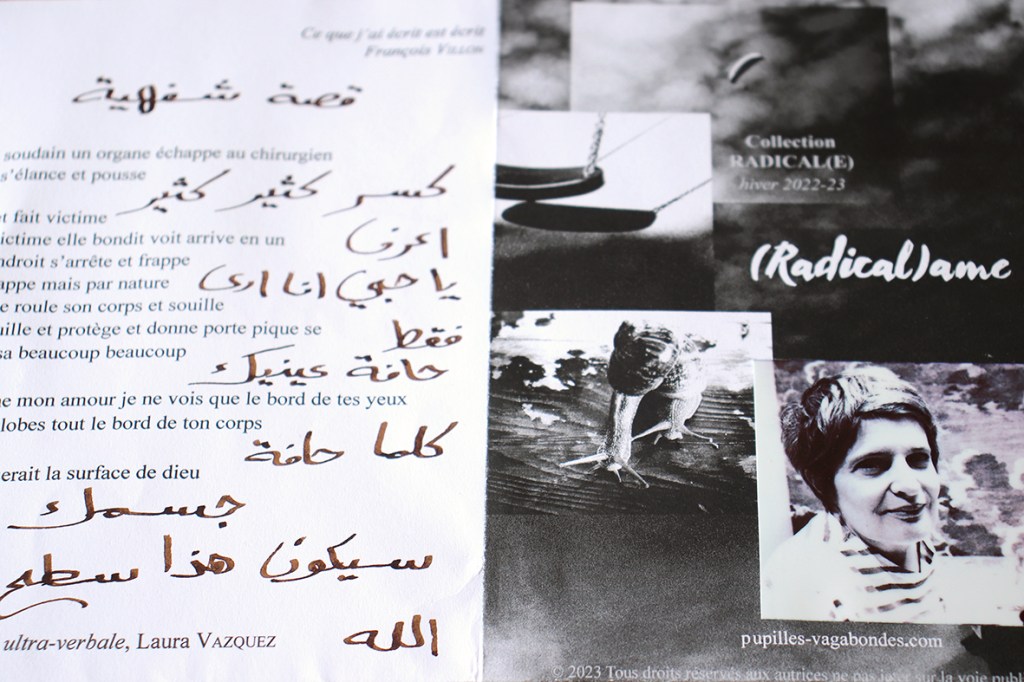 Ce que j'ai écrit est écrit
François VILLON
قصة شفهية
soudain un organe échappe au chirurgien
s'élance et pousse
كسر كثير كثير
et fait victime
ictime elle bondit voit arrive en un
اعرف
ndroit s'arrête et frappe
appe mais par nature
يا حبي انا ارى
e roule son corps et souille
uille et protège et donne porte pique se
فقط
sa beaucoup beaucoup
حافة عينيك
e mon amour je ne vois que le bord de tes yeux
lobes tout le bord de ton corps
كلما حافة
erait la surface de dieu
جسمك
سيكون هذا سطح
الله
ultra-verbale, Laura VAZQUEZ
Collection
RADICAL(E)
hiver 2022-23
(Radical)ame
pupilles-vagabondes.com
© 2023 Tous droits réservés aux autrices ne pas jeter sur la voie publ